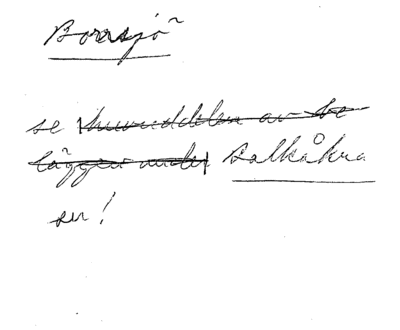 Borrsjö
se huvuddelen av be
läggen under Balkåkra
sn!